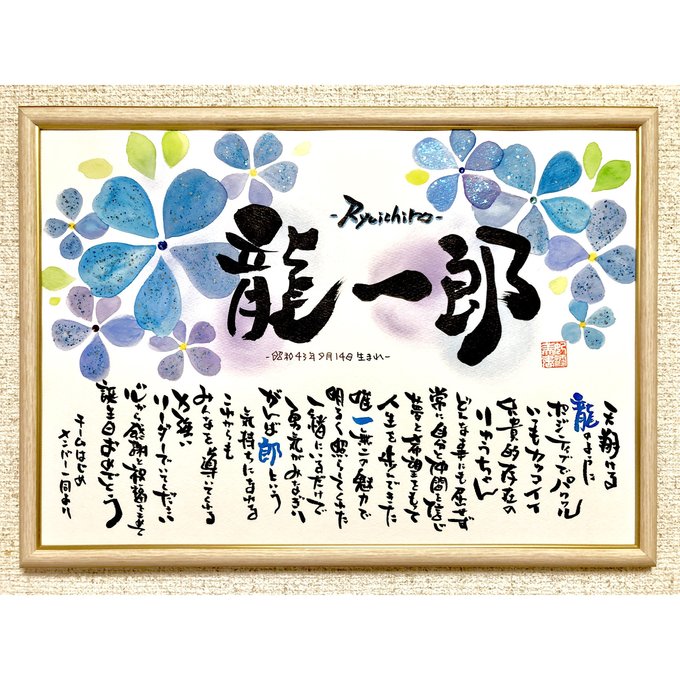 -Ryuichiro-
龍一郎
-昭和43年9月14日生まれ-
天翔ける
龍のように
ポジティブでパワフル
いつもカッコイイ
兄貴的存在の
りゅうちゃん
どんな事にも屈せず
常に自分と仲間を信じ
夢と希望をもって
人生を歩んできた
唯一無二の魅力で
明るく照らしてくれた
一緒にいるだけで
勇気がみなぎり
がんば郎という
気持ちになれる
これからも
みんなを導いてくれる
力強い
リーダーでいてください
心から感謝と祝福を込めて
誕生日おめでとう
チームはじめ
メンバー一同より